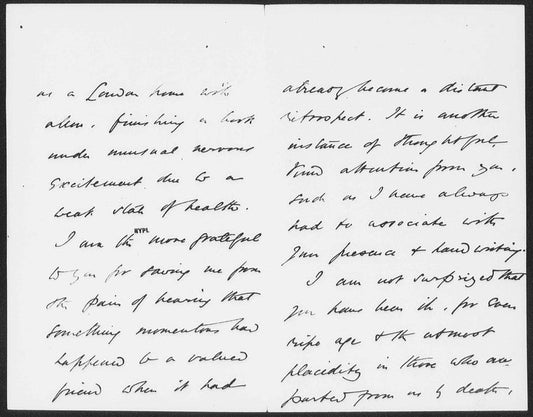 as a London home with
alem, finishing a book
under unusual nervous
excitement due to a
weak state of health.
I am the more grateful
NYPL
to you for saving me from
the pain of hearing that
something momentous had
happened to a valued
friend when it had
already become a distant
retrospect. It is another
instance of thoughtful
kind attention from you,
such as I have always
had to associate with
your presence & handwriting.
I am not surprized that
you have been ill, for even
ripe age & the utmost
placidity in those who are
parted from us by death,